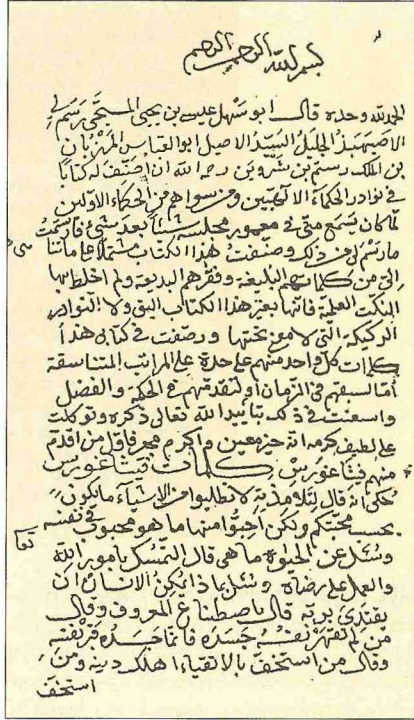 بسم الله الرحمن الرحيم
الحمد لله وحده قال ابو سهل عيسى بن يحيى المسيحى رسم لى
الاصبهبذ الجليل السيد الاصيل ابو العباس المرزبان
بن الملك رستم بن شروين رحمه الله ان اصنف له كتابا
فى نوادر الحكماء الآلهيين ومن سواهم من الحكماء الاولين
لما كان يسمع منى فى معمور مجلسه شيئا بعد شئ فارتسمت
ما رسم لى من ذلك وصنفت هذا الكتاب مشتملا على ما تنا
الى من كلماتهم البليغة وفقرهم البديعة ولم اخلط بها
النكت العلمية فانها بغير هذا الكتاب اليق ولا النوادر
الركيكة التى لا معنى تحتها ورصفت فى كتابى هذا
كلمات كل واحد منهم على حدة على المراتب المتناسقة
اما لسبقهم فى الزمان او لتقدمهم فى الحكمة والفضل
واستعنت فى ذلك بتأييد الله تعالى ذكره وتوكلت
على لطيف كرمه انه خير معين واكرم فاول من اقدم
منهم فيثاغورس كلمات فيثاغورس
حكى انه قال لتلامذته لا تطلبوا من الاشياء ما يكون
بحسب محبتكم ولكن احبوا منها ما هو محبوب فى نفسه
وسئل عن الحيوة ما هى قال التمسك بامور الله
والعمل على رضاه وسئل بماذا يمكن الانسان ان
يقتدى بربه قال باصطناع المعروف وقال
من لم تقهر نفسه جسده فانما جسده قبر نفسه
وقال من استخف بالاتقياء اهلك دينه ومن
استخف